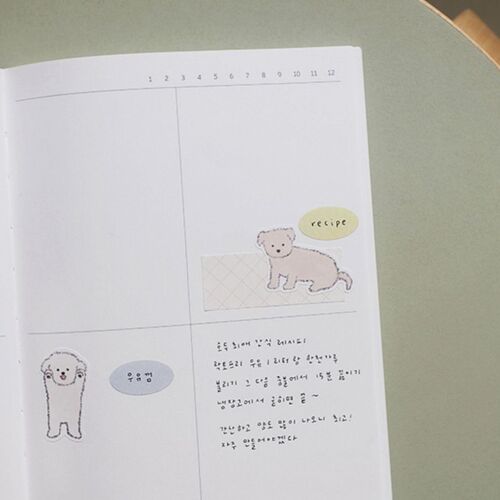 1 2 3 4 5 6 7 8 9 10 11 12
recipe
우유껌
호두 최애 간식 레시피!
락토프리 우유 1리터랑 한천가루
불리기 그 다음 중불에서 15분 끓이기
냉장고에서 굳히면 끝 ~
간단하고 양도 많이 나오니 최고!
자주 만들어야겠다